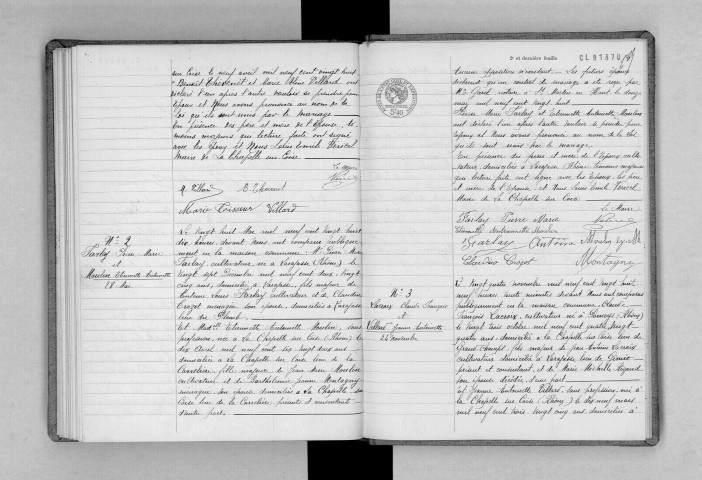 sur Coise le neuf avril mil neuf cent vingt huit
Benoît Thevenet et Marie Villard ont
déclaré l'un après l'autre vouloir se prendre pour
époux et Nous avons prononcé au nom de la
loi qu'ils sont unis par le mariage
En présence des père et mère de l'épouse, et
témoins majeurs qui lecture faite ont signé
avec les époux et Nous Louis Emile Véricel
Maire de La Chapelle sur Coise
Le Maire
Villard
Marie Villard
N° 2
Farlay Pierre Marie
et
Moulin Etiennette Antoinette
28 Mai
Le vingt huit Mai mil neuf cent vingt huit
dix heures devant Nous ont comparu publique
ment en la maison commune M. Pierre Marie
Farlay, cultivateur né à Larajasse (Rhône) le
vingt sept Décembre mil neuf cent deux, vingt
cinq ans, domicilié à Larajasse, fils majeur de
Farlay cultivateur et de Claudine
Crozet ménagère son épouse domiciliés à Larajasse
lieu du
Et Etiennette Antoinette Moulin, sans
profession, née à La Chapelle sur Coise (Rhône) le
dix Avril mil neuf cent six vingt deux ans
domiciliée à La Chapelle sur Coise lieu de la
fille majeure de Jean Moulin
cultivateur et de Jeanne Montagny
ménagère, son épouse, domiciliés à La Chapelle sur
Coise lieu de la présents et consentants
d'autre part
2e et dernière feuille
CL 91570
Aucune opposition n'existant. Les futurs époux
déclarent qu'un contrat de mariage a été reçu par
Me notaire à St Martin en Haut le douze
mai mil neuf cent vingt huit
Pierre Marie Farlay et Etiennette Antoinette Moulin
ont déclaré l'un après l'autre vouloir se prendre pour
époux et Nous avons prononcé au nom de la loi
qu'ils sont unis par le mariage.
En présence des père et mère de l'épouse
domiciliés à Larajasse (Rhône) témoins majeurs
qui lecture faite ont signé avec les époux, les père
et mère de l'épouse et Nous Louis Emile Véricel
Maire de La Chapelle sur Coise
Le Maire
Farlay Pierre Marie
Etiennette Antoinette Moulin
Farlay Antoine Moulin
Claudine Crozet Montagny
N° 3
Lacroix Claude François
et
Villard Jeanne Antoinette
24 Novembre
Le vingt quatre novembre mil neuf cent vingt huit
neuf heures trente minutes devant Nous ont comparu
publiquement en la maison commune Claude
François Lacroix, cultivateur né à (Rhône)
le vingt trois octobre mil neuf cent quatre vingt
quatre ans domicilié à La Chapelle sur Coise lieu de
fils majeur de Jean Lacroix
cultivateur domicilié à Larajasse lieu de
présent et consentant, et de Marie
son épouse décédée, d'une part
et Jeanne Antoinette Villard, sans profession, née à
La Chapelle sur Coise (Rhône) le dix neuf mars
mil neuf cent trois vingt cinq ans, domiciliée à